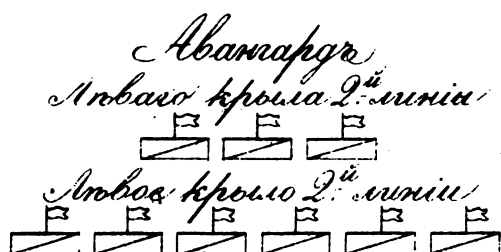 Авангардъ
Лѣваго крыла 2й линіи
Лѣвое крыло 2й линіи